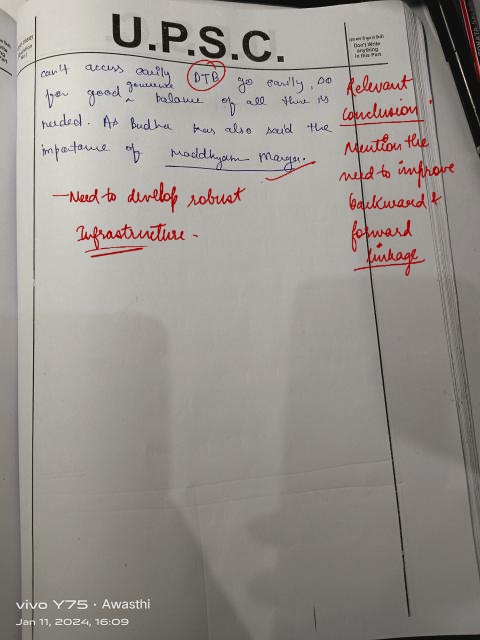 U.P.S.C.
Don't Write
anything
in this Part
can't access easily DTB go easily, so
for good governance balance of all three is
needed. As Budha has also said the
importance of Maddhyam Marga.
— Need to develop robust
Infrastructure -
Relevant
Conclusion.
Mention the
need to improve
backward &
forward
linkage
vivo Y75 · Awasthi
Jan 11, 2024, 16:09